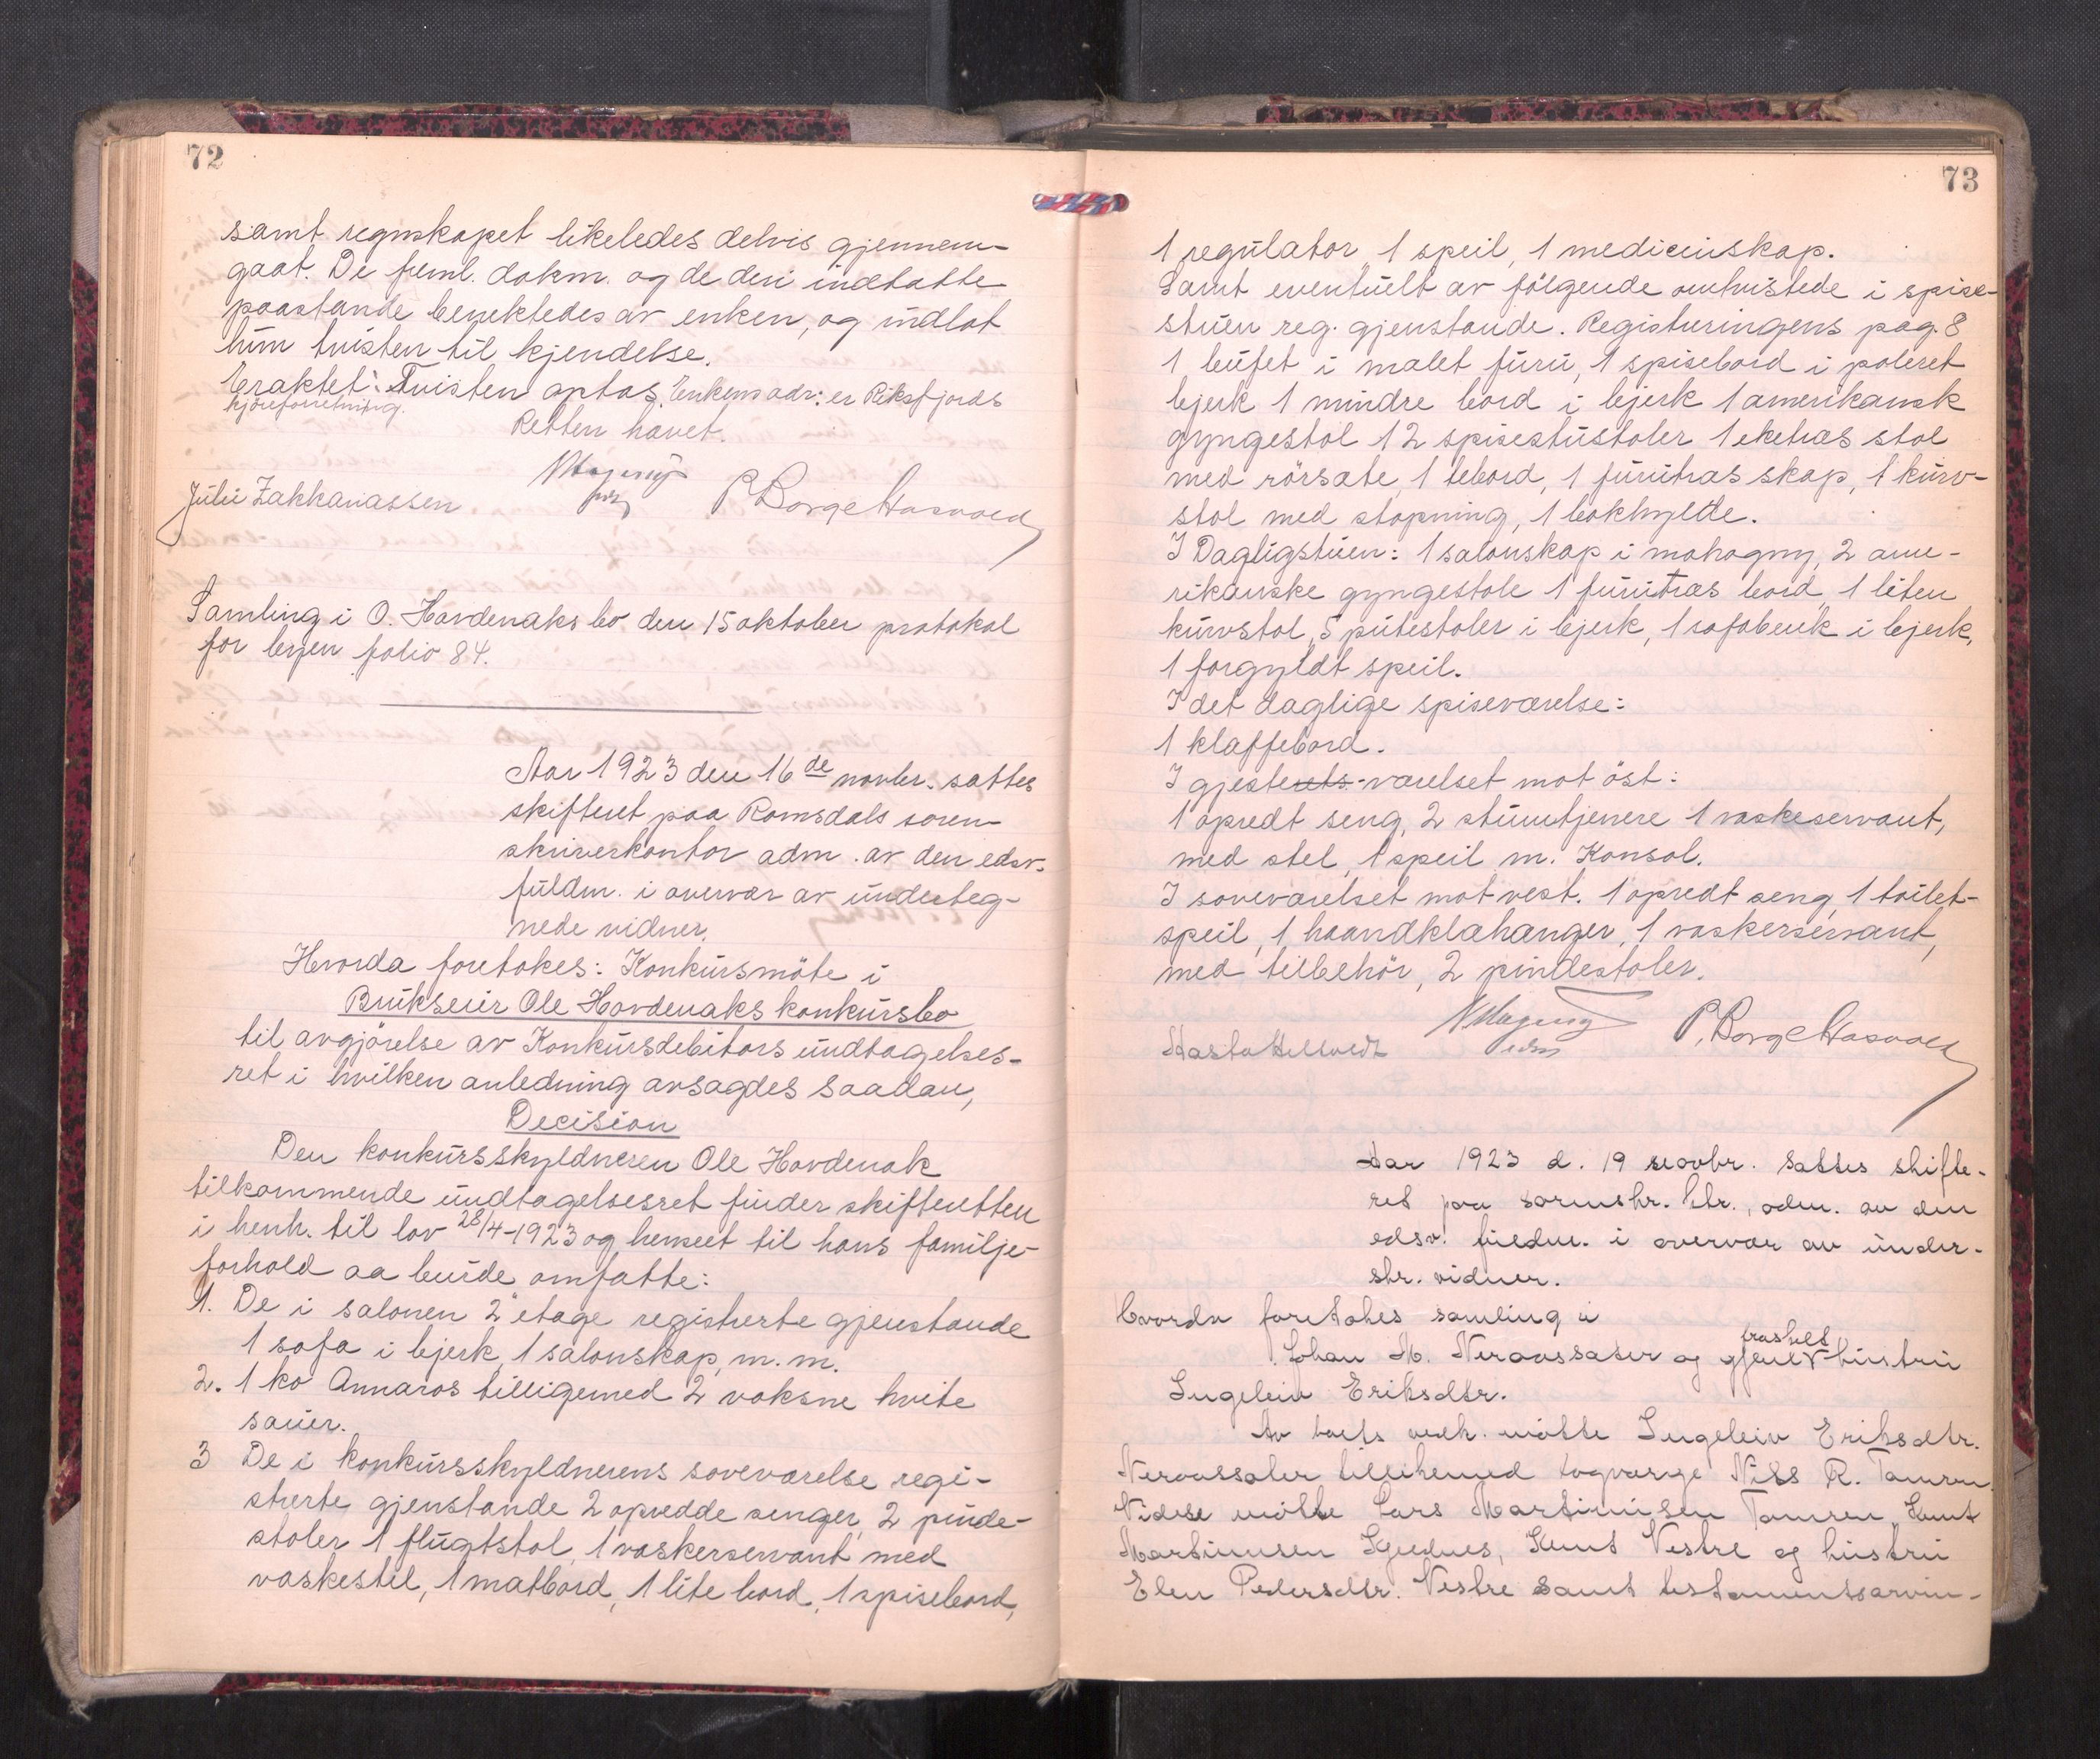 72
samt regnskapet likeledes delvis gjennem-
gaat. De freml. dokm. og de deri indtatte
paastande benektedes av enken, og indlot
hun tvisten til kjendelse.
Eraktet: Tvisten optas. Enkens adr: er Riksfjords
kjöreforretning.
Retten hævet.
Julie Zakkariassen P. Borge Hasvold
Samling i O. Hovdenaks bo den 15 oktober protokol
for byen folio 84.
Aar 1923 den 16de novbr. sattes
skifteret paa Romsdals soren-
skriverkontor adm. av den edsv.
fuldm. i overvær av underteg-
nede vidner.
Hvorda foretokes: Konkursmöte i
Brukseier Ole Hovdenaks konkursbo
til avgjörelse av Konkursdebitors undtagelses-
ret i hvilken anledning avsagdes saadan,
Decision
Den konkursskyldneren Ole Hovdenak
tilkommende undtagelsesret finder skifteretten
i henh. til lov 28/4-1923 og henseet til hans familje-
forhold aa burde omfatte:
1. De i salonen 2 etage registrerte gjenstande
1 sofa i bjerk, 1 salonskap, m. m.
2. 1 ko Annaros tilligemed 2 voksne hvite
sauer.
3 De i konkursskyldnerens soveværelse regi-
strerte gjenstande 2 opredde senger, 2 pinde-
stoler 1 flugtstol, 1 vaskerservant med
vaskestel, 1 matbord, 1 lite bord, 1 spisebord,
73
1 regulator, 1 speil, 1 medicinskap.
Samt eventuelt av fölgende omtvistede i spise-
stuen reg. gjenstande. Registreringens pag. 8
1 bufet i malet furu, 1 spisebord i poleret
bjerk 1 mindre bord i bjerk 1 amerikansk
gyngestol 12 spisestustoler 1 eketræs stol
med rörsæte, 1 tebord, 1 furutræs skap, 1 kurv-
stol med stopning, 1 bokhylde.
I Dagligstuen: 1 salonskap i mahogny, 2 ame-
rikanske gyngestole 1 furutræs bord, 1 liten
kurvstol, 5 putestoler i bjerk, 1 sofabenk i bjerk,
1 forgyldt speil.
I det daglige spiseværelse:
1 klaffebord.
I gjeste-værelset mot öst:
1 opredt seng, 2 stumtjenere 1 vaskeservant,
med stel, 1 speil m. Konsol.
I soveværelset mot vest. 1 opredt seng, 1 toilet-
speil, 1 haandklæhanger, 1 vaskerservant,
med tilbehör, 2 pindestoler.
P. Borge Hasvold
Aar 1923 d. 19 novbr. sattes skifte-
ret paa sorenskr. ktr., adm. av den
edsv. fuldm. i overvær av under-
skr. vidner.
Hvorda foretokes samling i
Johan M. og hustru
fraskilt
Ingeleiv Eriksdtr.
Av boets vedk. mötte Ingeleiv Eriksdtr.
tillikemed lagværge Nils R. Tamsen.
Videre mötte Lars Martinusen Tamsen, Knut
Martinusen Knut Vestre og hustru
Elen Pedersdtr. Vestre samt testamentsarvin-